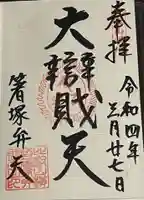 奉拝
令和四年
三月廿七日
大辯財天
箸塚弁天